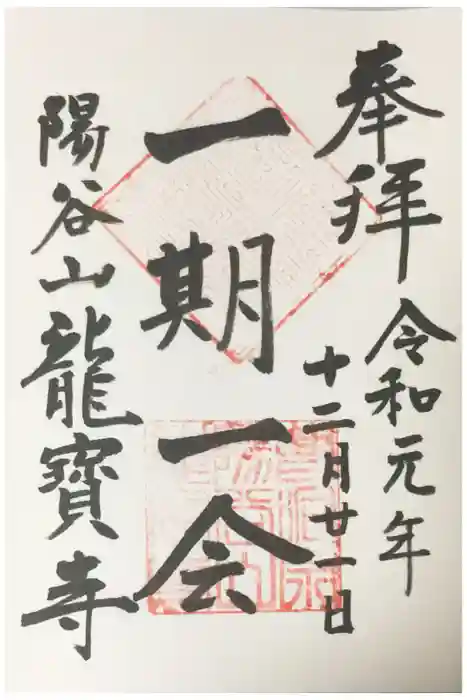 奉拝
令和元年
十二月廿一日
一期一会
陽谷山龍寶寺